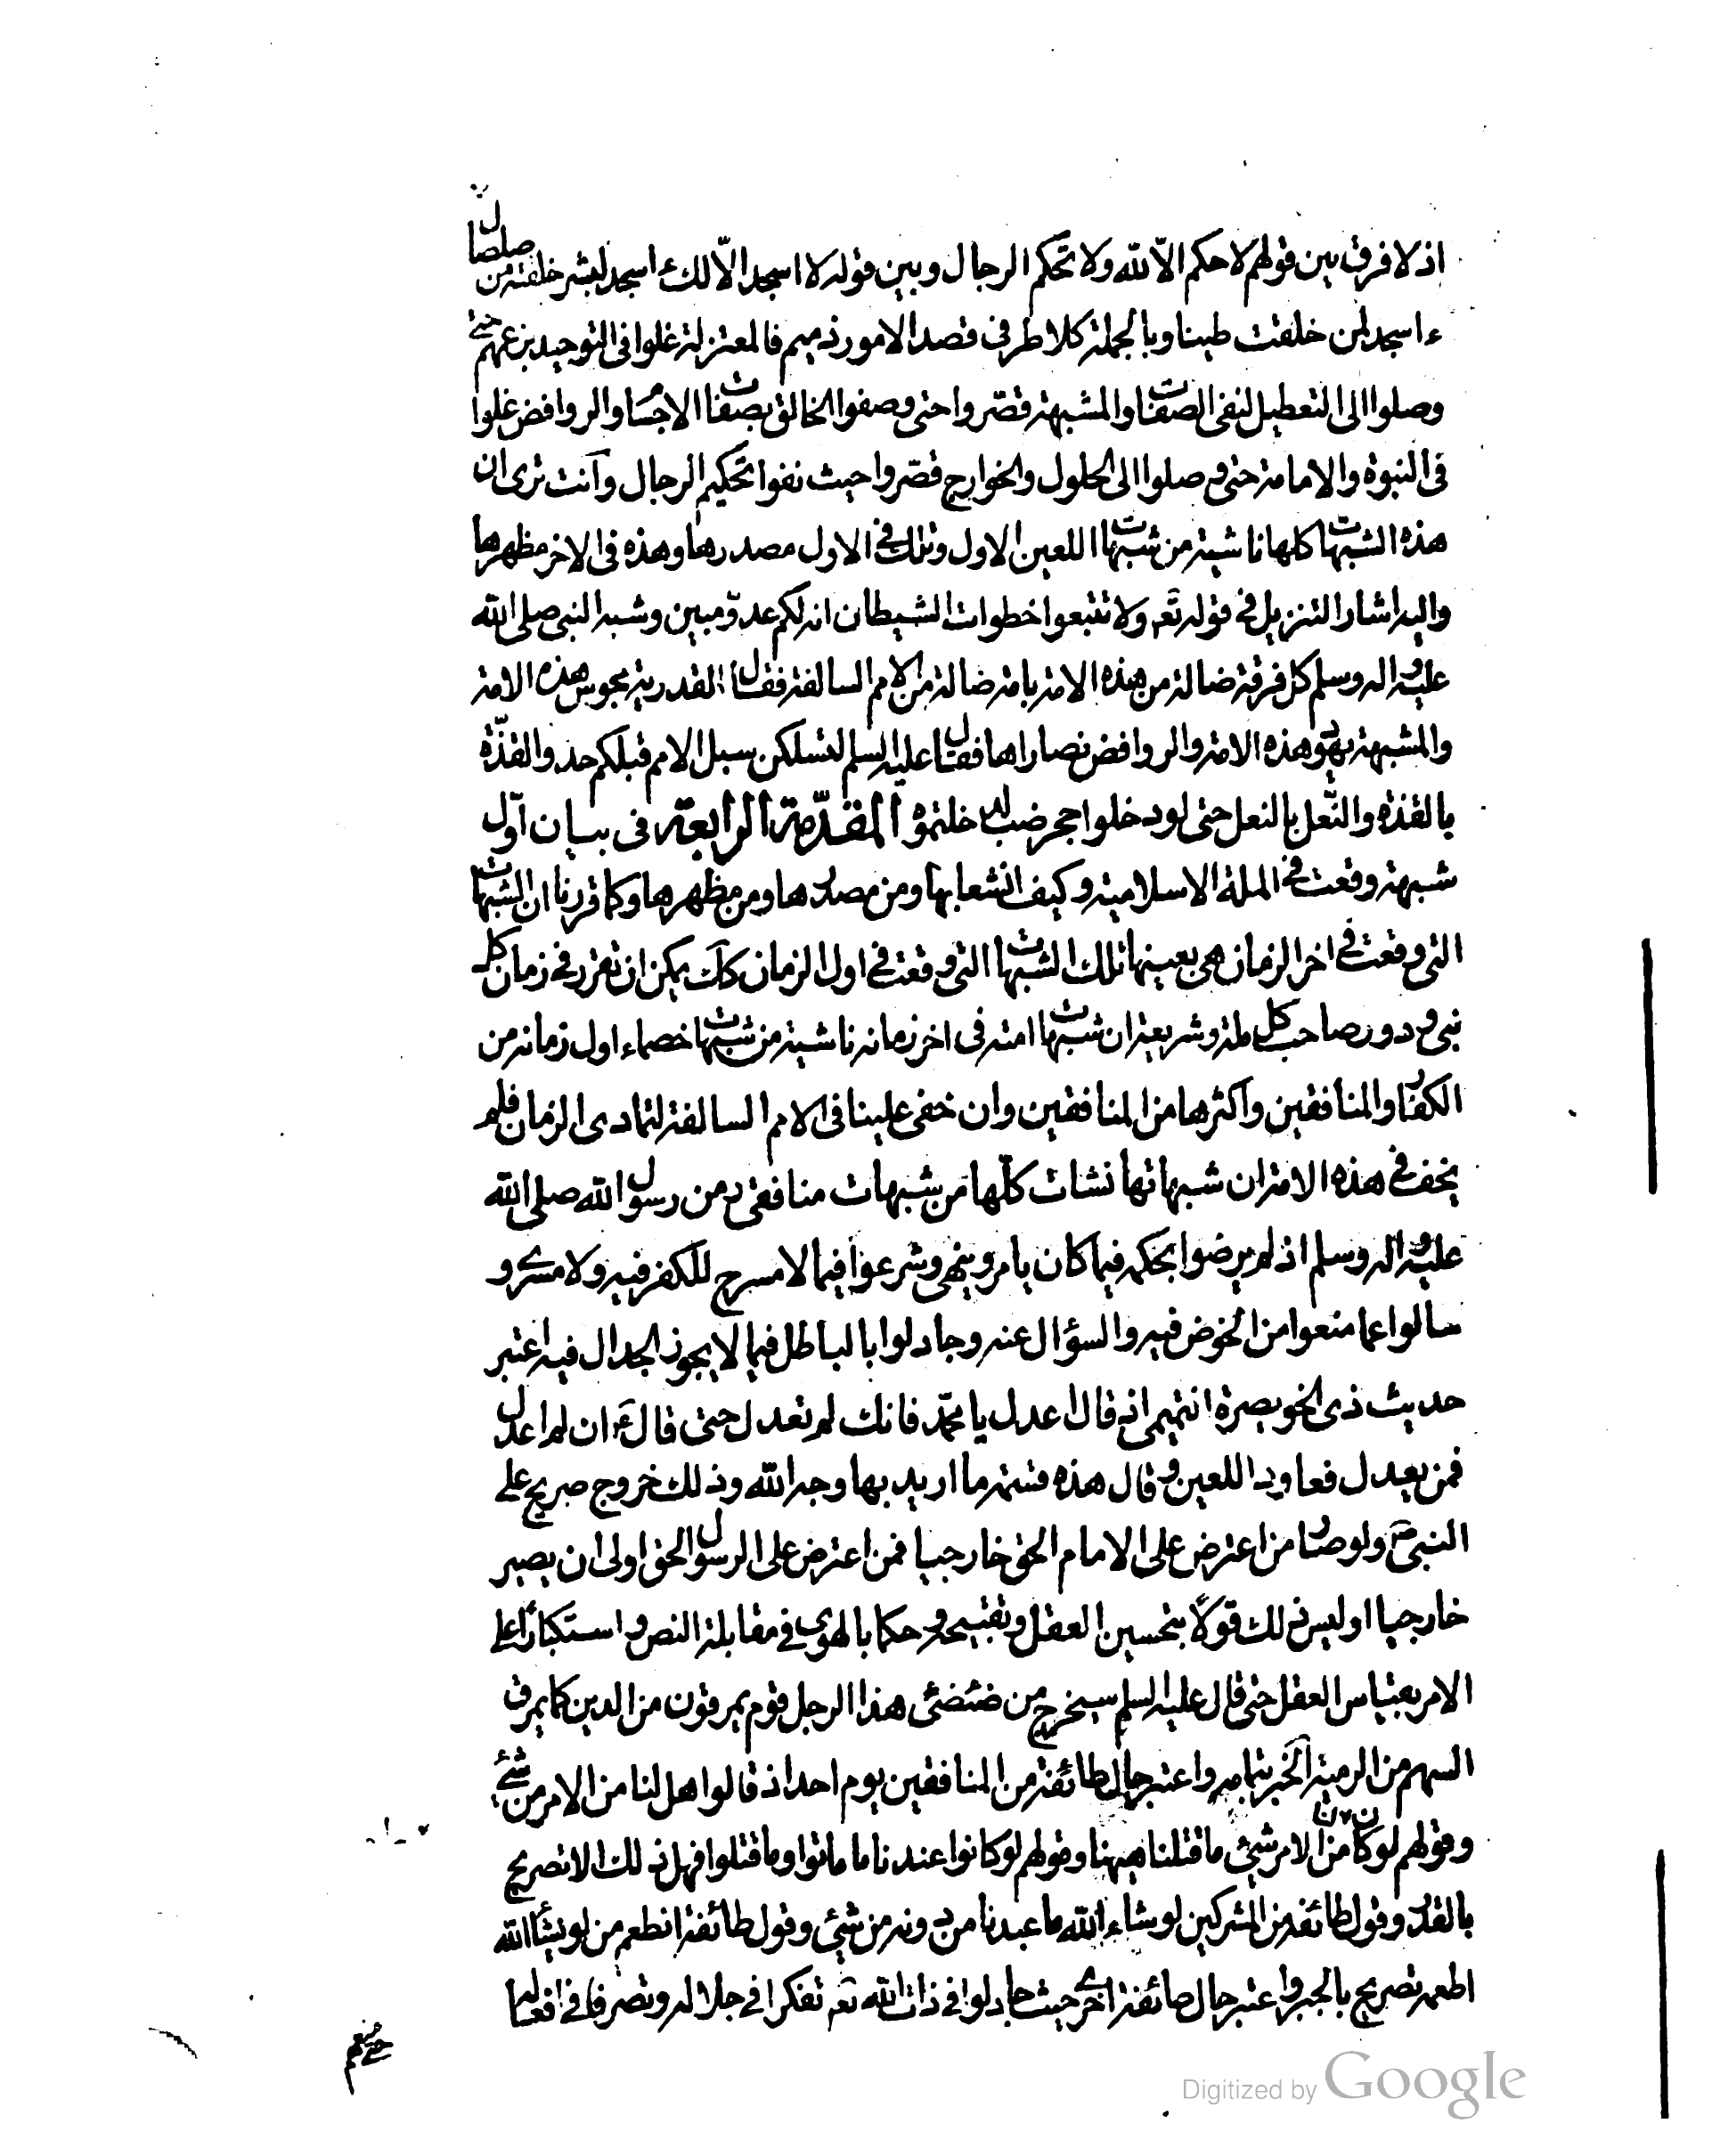 اذ لا فرق بين قولهم لا حكم الّا لله ولا تحكم الرجال وبين قوله لا اسجد الّا لك ءاسجد لبشر خلقته من صلصال
ءاسجد لمن خلقت طينا وبالجملة كلا طرفى قصد الامور ذميم فالمعتزلة غلوا فى التوحيد بزعمهم حتى
وصلوا الى التعطيل لنفى الصفات والمشبهة قصّروا حتى وصفوا الخالق بصفات الاجسام والروافض غلوا
فى النبوة والامامة حتى وصلوا الى الحلول والخوارج قصّروا حيث نفوا تحكيم الرجال وانت ترى ان
هذه الشبهات كلها ناشية من شبهات اللعين الاول وتلك فى الاول مصدرها وهذه فى الاخر مظهرها
واليه اشار التنزيل فى قوله تعه ولا تتبعوا خطوات الشيطان انه لكم عدوّ مبين وشبه النبى صلى الله
عليه واله وسلم كل فرقة ضالة من هذه الامة بامة ضالة من الامم السالفة فقال القدرية مجوس هذه الامة
والمشبهة يهود هذه الامة والروافض نصاراها فقال عليه السلم لتسلكن سبل الامم قبلكم حذو القذّة
بالقذة والنّعل بالنعل حتى لو دخلوا جحر ضب لدخلتموه المقدّمة الرابعة فى بيان اوّل
شبهة وقعت فى الملة الاسلامية وكيف انشعابها ومن مصدرها ومن مظهرها وكما قررنا ان الشبهات
التى وقعت فى اخر الزمان هى بعينها تلك الشبهات التى وقعت فى اول الزمان كك يمكن ان نقرر فى زمان كل
نبى ودور صاحب كل ملة وشريعة ان شبهات امته فى اخر زمانه ناشية من شبهات خصماء اول زمانه من
الكفار والمنافقين واكثرها من المنافقين وان خفى علينا فى الامم السالفة لتمادى الزمان فلم
يخف فى هذه الامة ان شبهاتها نشات كلّها من شبهات منافقى زمن رسول الله صلى الله
عليه واله وسلم اذ لم يرضوا بحكمه فيما كان يامر وينهى وشرعوا فيما لا مسرح للكفر فيه ولا مسرى و
سالوا عما منعوا من الخوض فيه والسؤال عنه وجادلوا بالباطل فيما لا يجوز الجدال فيه اعتبر
حديث ذى الخويصرة التميمى اذ قال اعدل يا محمّد فانك لم تعدل حتى قال ع ان لم اعدل
فمن يعدل فعاود اللعين وقال هذه قسمة ما اريد بها وجه الله وذلك خروج صريح على
النبى ص ولو صار من اعترض على الامام الحق خارجيا فمن اعترض على الرسول الحق اولى ان يصير
خارجيا اوليس ذلك قولًا بتحسين العقل وتقبيحه وحكما بالهوى فى مقابلة النص واستكبارًا على
الامر بقياس العقل حتى قال عليه السلم سيخرج من ضئضئى هذا الرجل قوم يمرقون من الدين كما يمرق
السهم من الرمية الخبر بتمامه واعتبر حال طائفة من المنافقين يوم احد اذ قالوا هل لنا من الامر من شئ
وقولهم لو كان لنا من الامر شئ ما قتلنا هيهنا وقولهم لو كانوا عندنا ما ماتوا وما قتلوا فهل ذلك الا تصريح
بالقدر وقول طائفة من المشركين لو شاء الله ما عبدنا من دونه من شئ وقول طائفة انطعم من لو يشأ الله
اطعمه تصريح بالجبر واعتبر حال طائفة اخرى حيث جادلوا فى ذات الله تعه تفكرا فى جلاله وتصرفا فى افعاله
حتى منعهم
Digitized by Google